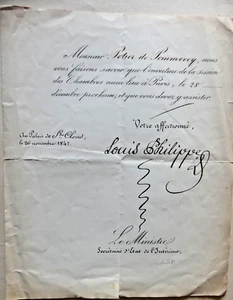 Monsieur Potier de Pommeroy, nous
vous faisons savoir que l'ouverture de la session
des Chambres aura lieu à Paris, le 28
décembre prochain, et que vous devez y assister.
Votre affectionné,
Au Palais de St. Cloud,
le 20 novembre 1847.
Louis Philippe
Le Ministre
Secrétaire d'État de l'Intérieur,